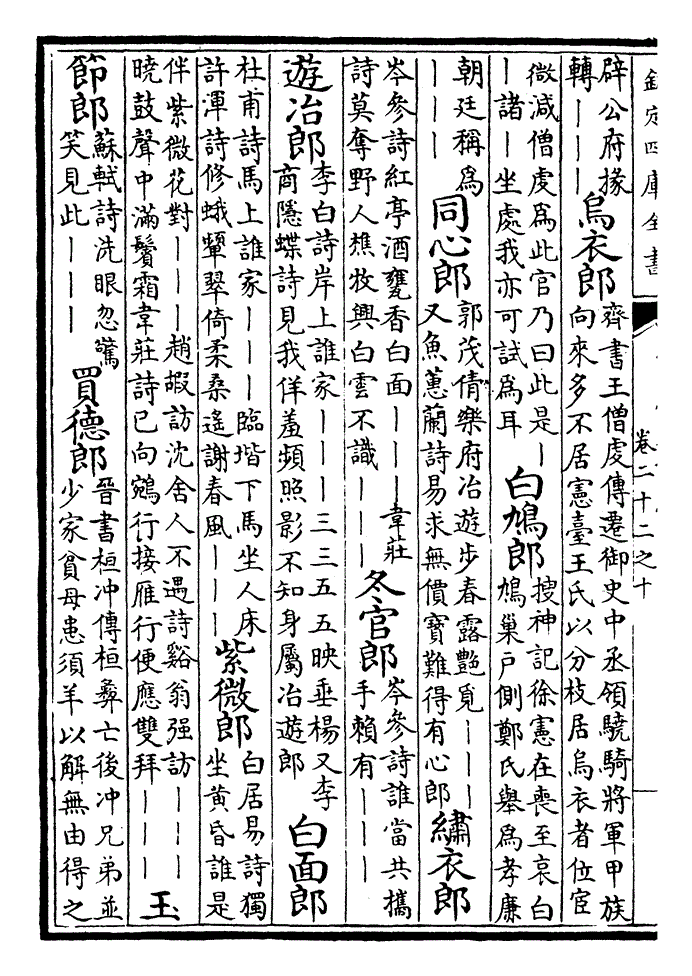 欽定四庫全書
卷二十二之十
辟公府掾
轉｜｜｜
烏衣郎
齊書王僧虔傳遷御史中丞領驍騎將軍甲族
向來多不居憲臺王氏以分枝居烏衣者位宦
微減僧虔為此官乃曰此是｜
｜諸｜坐處我亦可試為耳
白鳩郎
搜神記徐憲在喪至哀白
鳩巢戶側鄭氏舉為孝廉
朝廷稱為
｜｜｜
同心郎
郭茂倩樂府冶遊步春露艷覓｜｜｜
又魚蕙蘭詩易求無價寶難得有心郎
繡衣郎
岑參詩紅亭酒甕香白面｜｜｜韋莊
詩莫奪野人樵牧興白雲不識｜｜｜
冬官郎
岑參詩誰當共攜
手賴有｜｜｜
遊冶郎
李白詩岸上誰家｜｜｜三三五五映垂楊又李
商隱蝶詩見我佯羞頻照影不知身屬冶遊郎
白面郎
杜甫詩馬上誰家｜｜｜臨堦下馬坐人床
許渾詩修蛾顰翠倚柔桑遙謝春風｜｜｜
紫微郎
白居易詩獨
坐黃昏誰是
伴紫微花對｜｜｜趙嘏訪沈舍人不遇詩谿翁强訪｜｜｜
曉鼓聲中滿鬢霜韋莊詩已向鵷行接雁行便應雙拜｜｜｜
玉
節郎
蘇軾詩洗眼忽驚
笑見此｜｜｜
買德郎
晉書桓冲傳桓彝亡後冲兄弟並
少家貧母患須羊以解無由得之